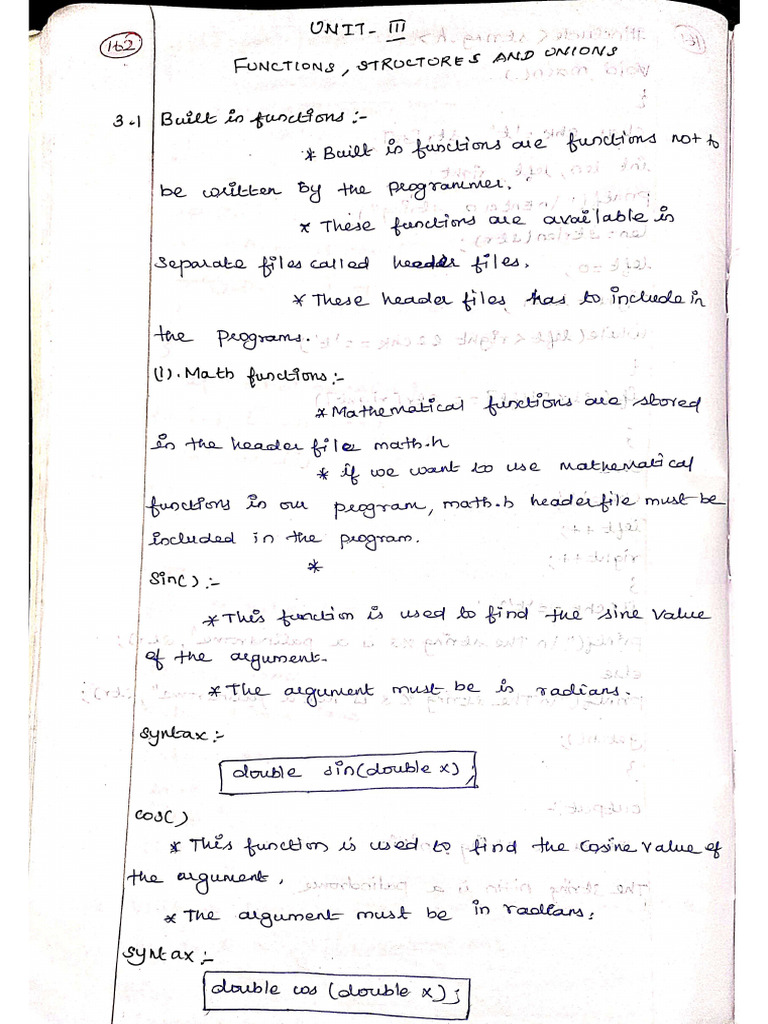 UNIT- III
162
FUNCTIONS, STRUCTURES AND UNIONS
3.1 Built in functions :-
* Built in functions are functions not to
be written by the programmer.
* These functions are available in
separate files called header files.
* These header files has to include in
the programs.
(1). Math functions :-
* Mathematical functions are stored
in the header file math.h
* if we want to use mathematical
functions in our program, math.h header file must be
included in the program.
*
Sin( ) :-
* This function is used to find the sine value
of the argument.
* The argument must be in radians.
syntax :-
double sin(double x);
cos( )
* This function is used to find the cosine value of
the argument.
* The argument must be in radians.
syntax :-
double cos (double x);